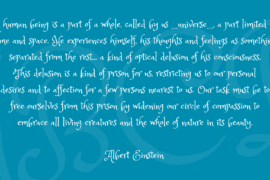 human being is a part of a whole, called by us _universe_, a part limited
me and space. He experiences himself, his thoughts and feelings as something
separated from the rest... a kind of optical delusion of his consciousness.
This delusion is a kind of prison for us, restricting us to our personal
desires and to affection for a few persons nearest to us. Our task must be to
free ourselves from this prison by widening our circle of compassion to
embrace all living creatures and the whole of nature in its beauty.
Albert Einstein